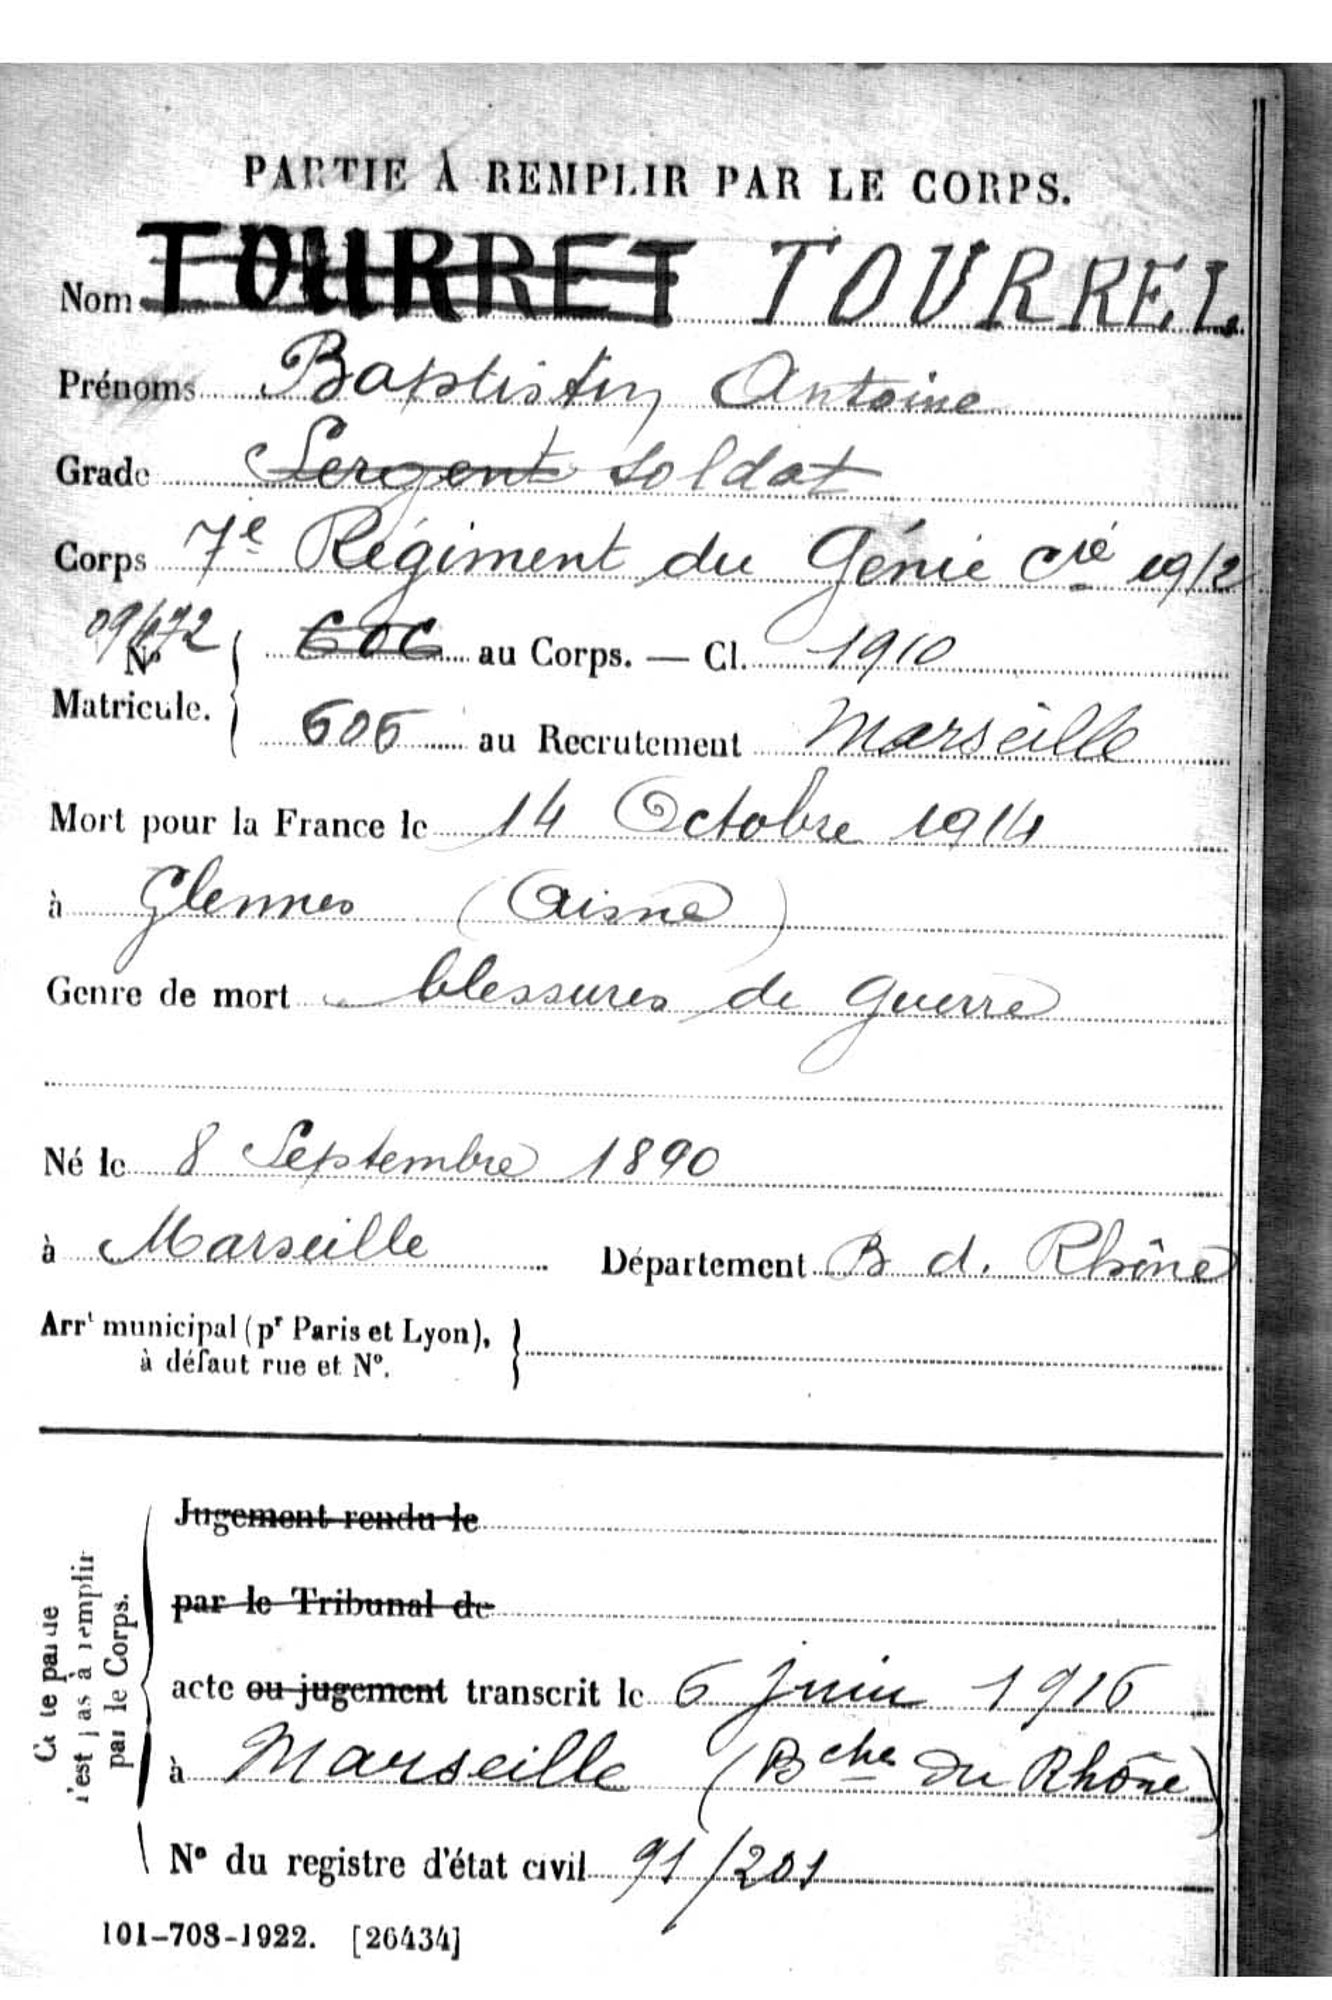 PARTIE À REMPLIR PAR LE CORPS.
Nom TOURRET TOURREL
Prénoms Baptistin Antoine
Grade Sergent soldat
Corps 7e Régiment du Génie Cie 19/2
N° au Corps. — Cl. 1910
Matricule. 606 au Recrutement Marseille
Mort pour la France le 14 Octobre 1914
à Glennes (Aisne)
Genre de mort blessures de guerre
Né le 8 Septembre 1890
à Marseille Département B d. Rhône
Arrt municipal (pr Paris et Lyon),
à défaut rue et N°.
Jugement rendu le
par le Tribunal de
acte ou jugement transcrit le 6 juin 1916
à Marseille (Bches du Rhône)
N° du registre d'état civil 91/201
Cette partie
n'est pas à remplir
par le Corps.
101-708-1922. [26434]